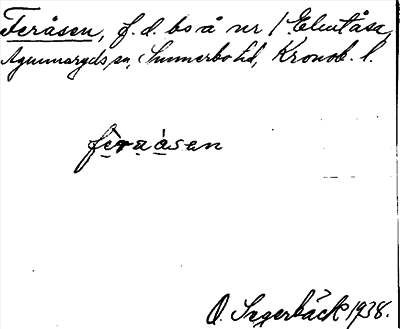 Feråsen, f.d. bo å nr 1 Elmtåsa,
Agunnaryds sn, Sunnerbo hd, Kronob. l.
fèraåsen
O. Sagerbäck 1938.